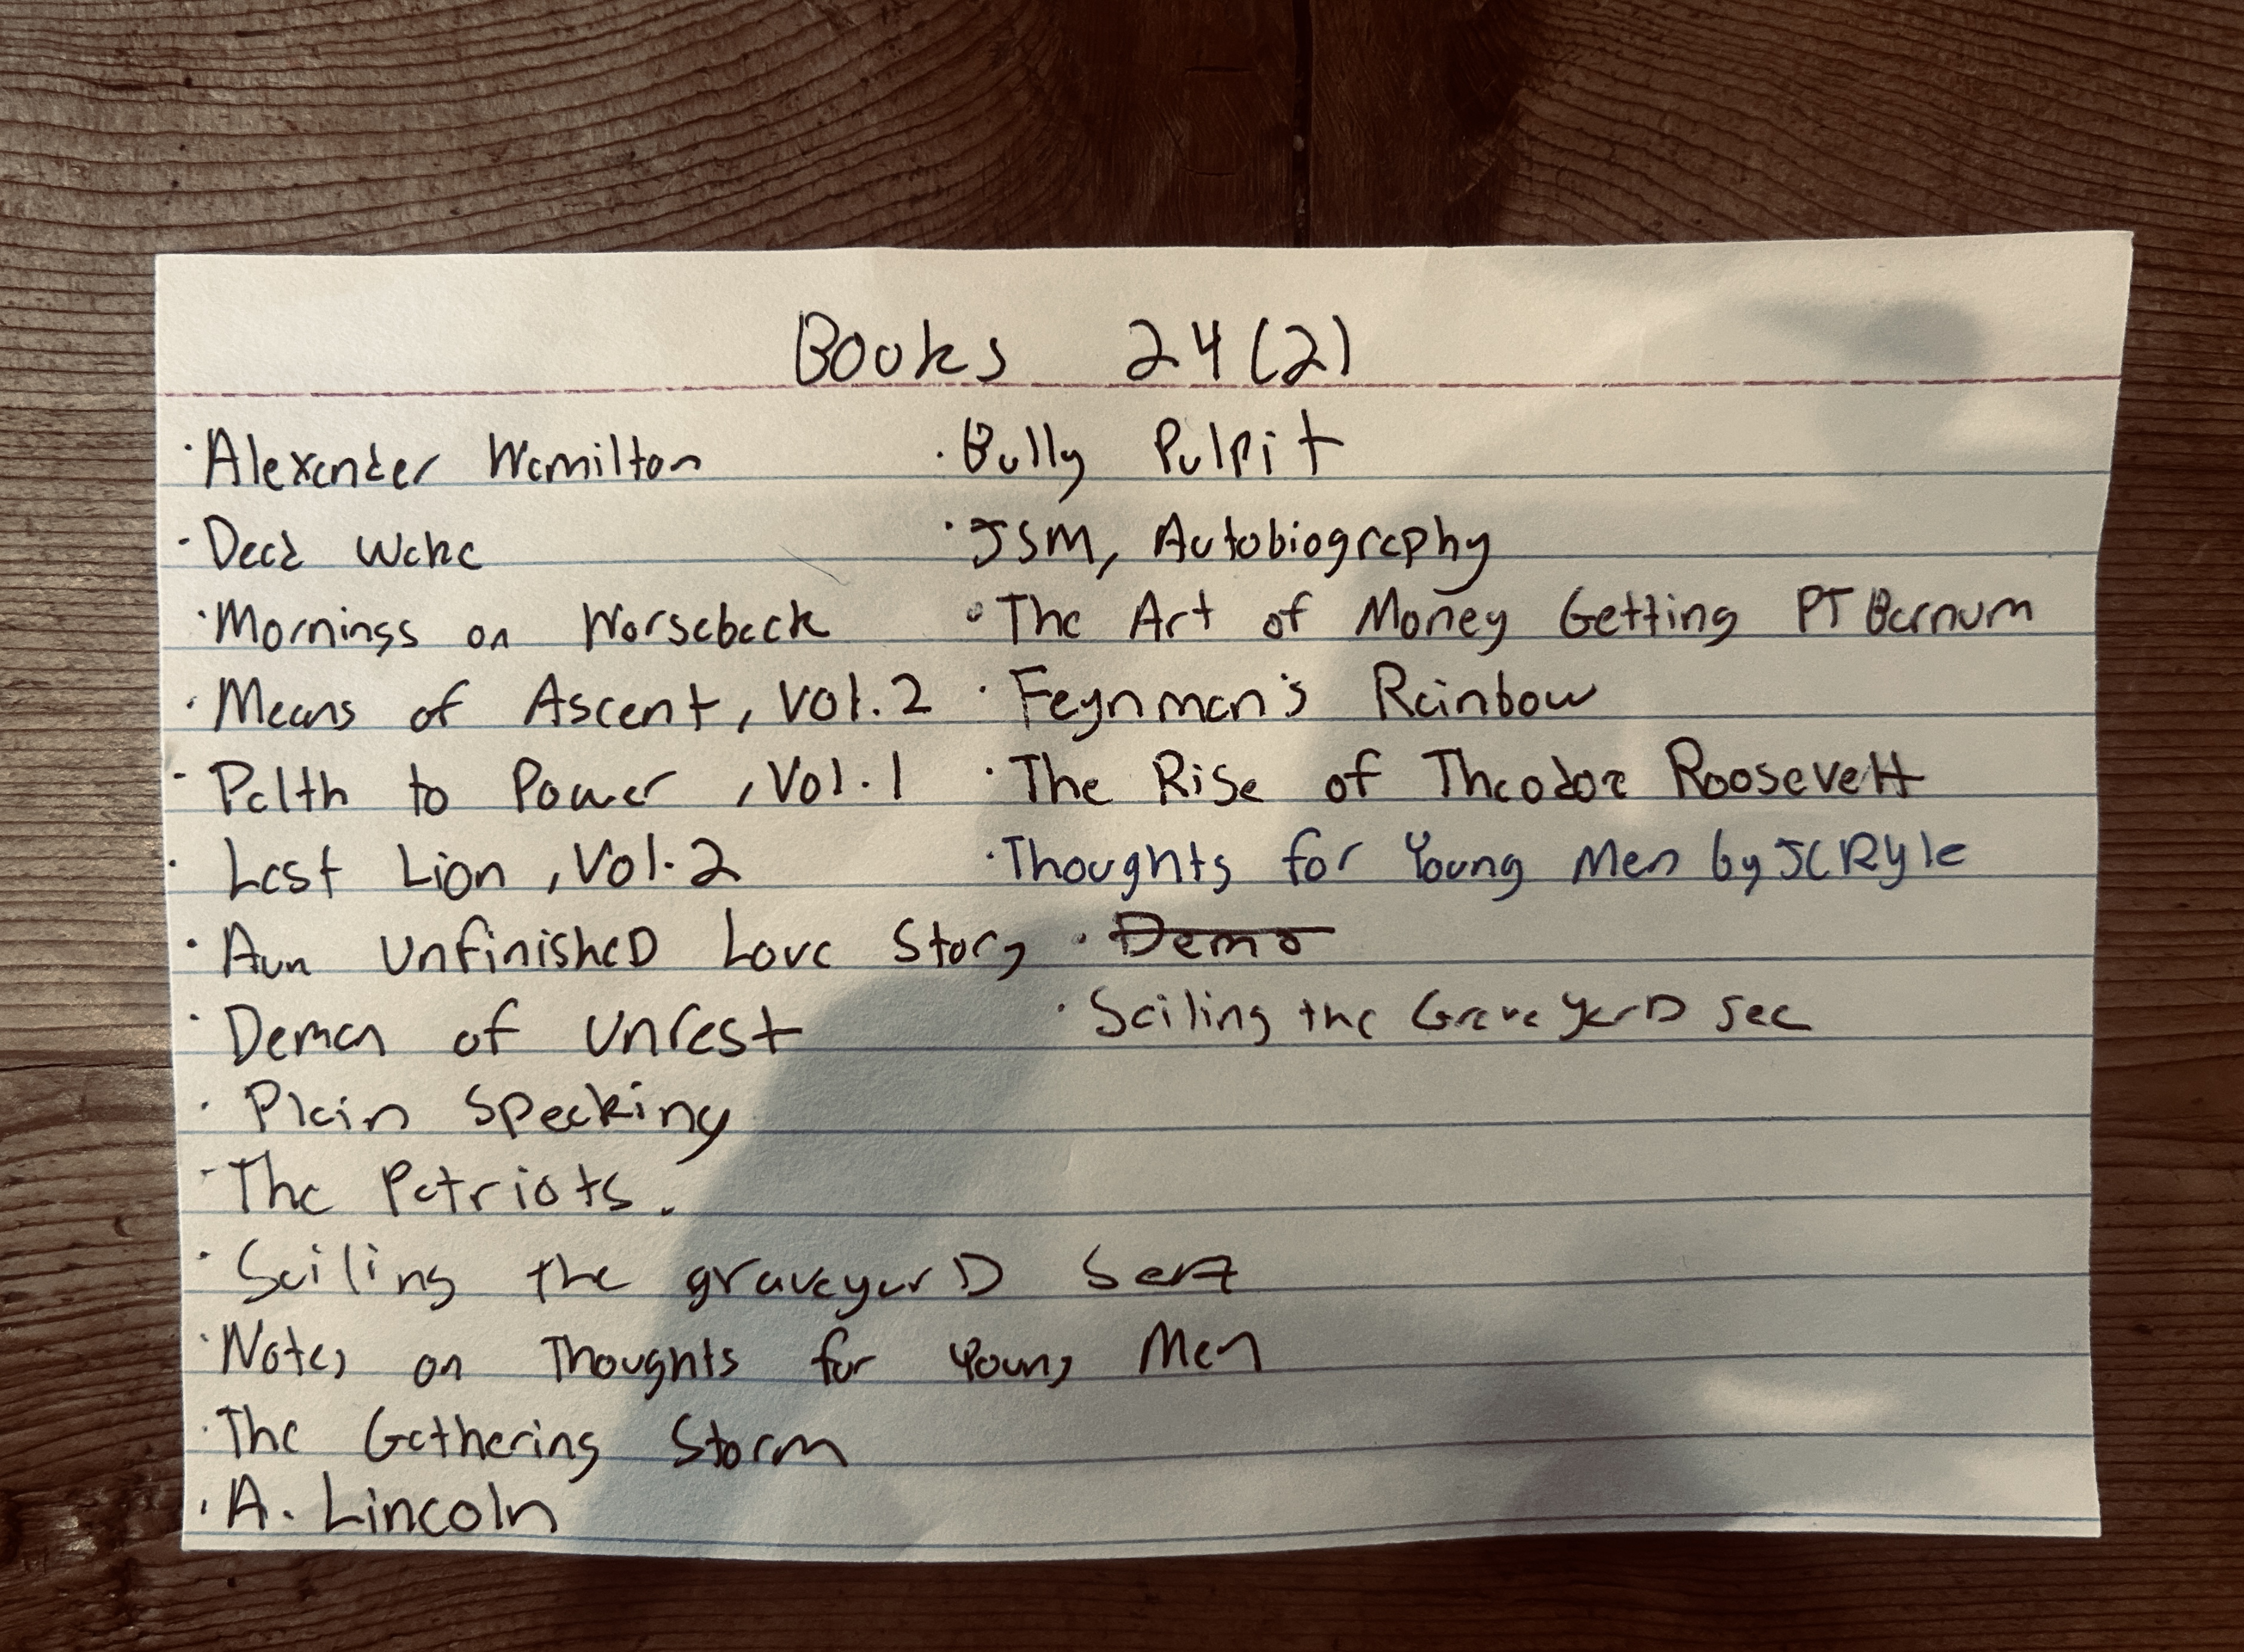 Books 24(2)
· Alexander Hamilton
· Dead Wake
· Mornings on Horseback
· Means of Ascent, Vol. 2
· Palth to Power, Vol. 1
· Last Lion, Vol. 2
· Aun Unfinished Love Story
· Deman of Unrest
· Plain Speaking
· The Patriots.
· Sailing the graveyarD Sea
· Notes on Thoughts for Young Men
· The Gathering Storm
· A. Lincoln
· Bully Pulpit
· JSM, Autobiography
· The Art of Money Getting PT Barnum
· Feynman's Rainbow
· The Rise of Theodore Roosevelt
· Thoughts for Young Men by JC Ryle
· Demo
· Sailing the GraveyarD Sea